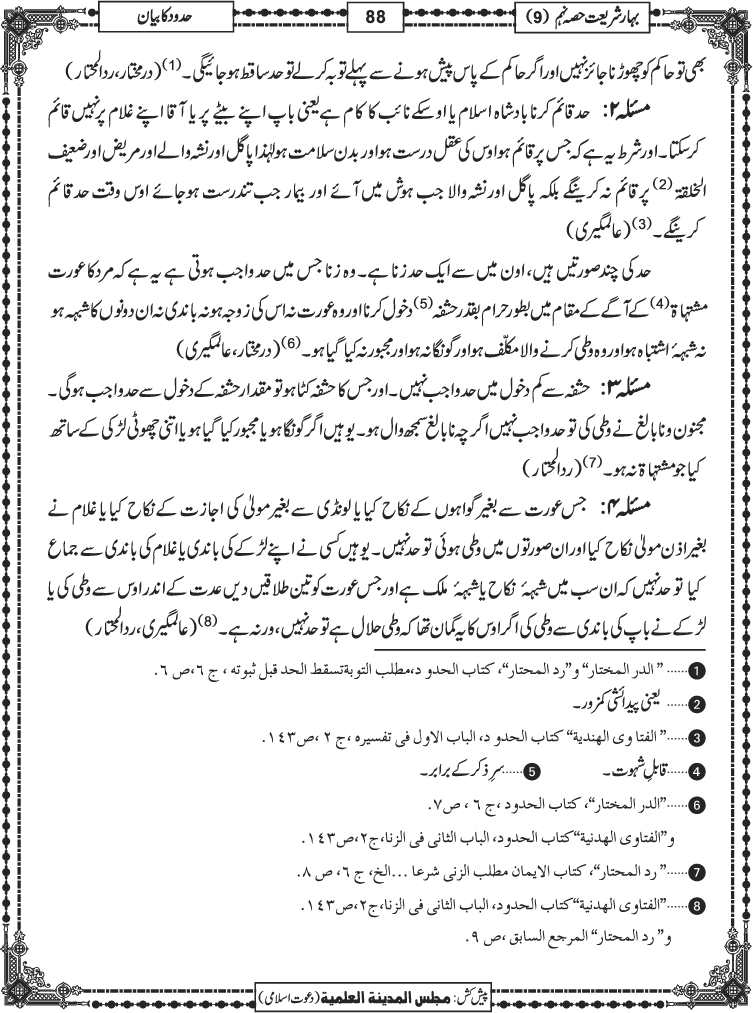 بہار شریعت حصہ نہم (9)
88
حدود کا بیان
بھی تو حاکم کو چھوڑنا جائز نہیں اور اگر حاکم کے پاس پیش ہونے سے پہلے توبہ کر لے تو حد ساقط ہو جائیگی۔ (1) (درمختار، ردالمحتار)
مسئلہ ۲: حد قائم کرنا بادشاہ اسلام یا اوسکے نائب کا کام ہے یعنی باپ اپنے بیٹے پر یا آقا اپنے غلام پر نہیں قائم
کرسکتا۔ اور شرط یہ ہے کہ جس پر قائم ہو اوس کی عقل درست ہو اور بدن سلامت ہو لہٰذا پاگل اور نشہ والے اور مریض اور ضعیف
الخلقۃ (2) پر قائم نہ کرینگے بلکہ پاگل اور نشہ والا جب ہوش میں آئے اور بیمار جب تندرست ہوجائے اوس وقت حد قائم
کرینگے۔ (3) (عالمگیری)
حد کی چند صورتیں ہیں، اون میں سے ایک حد زنا ہے۔ وہ زنا جس میں حد واجب ہوتی ہے یہ ہے کہ مرد کا عورت
مشتہاۃ (4) کے آگے کے مقام میں بطور حرام بقدر حشفہ (5) دخول کرنا اور وہ عورت نہ اس کی زوجہ ہو نہ باندی نہ ان دونوں کا شبہہ ہو
نہ شبہۂ اشتباہ ہو اور وہ وطی کرنے والا مکلّف ہو اور گونگا نہ ہو اور مجبور نہ کیا گیا ہو۔ (6) (درمختار، عالمگیری)
مسئلہ ۳: حشفہ سے کم دخول میں حد واجب نہیں۔ اور جس کا حشفہ کٹا ہو تو مقدار حشفہ کے دخول سے حد واجب ہوگی۔
مجنون و نابالغ نے وطی کی تو حد واجب نہیں اگرچہ نابالغ سمجھ وال ہو۔ یوہیں اگر گونگا ہو یا مجبور کیا گیا ہو یا اتنی چھوٹی لڑکی کے ساتھ
کیا جو مشتہاۃ نہ ہو۔ (7) (ردالمحتار)
مسئلہ ۴: جس عورت سے بغیر گواہوں کے نکاح کیا یا لونڈی سے بغیر مولیٰ کی اجازت کے نکاح کیا یا غلام نے
بغیر اذن مولیٰ نکاح کیا اور ان صورتوں میں وطی ہوئی تو حد نہیں۔ یوہیں کسی نے اپنے لڑکے کی باندی یا غلام کی باندی سے جماع
کیا تو حد نہیں کہ ان سب میں شبہۂ نکاح یا شبہۂ ملک ہے اور جس عورت کو تین طلاقیں دیں عدت کے اندر اوس سے وطی کی یا
لڑکے نے باپ کی باندی سے وطی کی اگر اوس کا یہ گمان تھا کہ وطی حلال ہے تو حد نہیں، ورنہ ہے۔ (8) (عالمگیری، ردالمحتار)
1 ...... ”الدر المختار“ و ”رد المحتار“، كتاب الحدود، مطلب التوبة تسقط الحد قبل ثبوته، ج ٦، ص ٦.
2 ...... یعنی پیدائشی کمزور۔
3 ...... ”الفتاوى الهندية“ كتاب الحدود، الباب الاول فى تفسيره، ج ٢، ص١٤٣.
4 ...... قابلِ شہوت۔ 5 ...... سرِ ذکر کے برابر۔
6 ...... ”الدر المختار“، كتاب الحدود، ج ٦، ص٧.
و”الفتاوى الهدنية“ كتاب الحدود، الباب الثانى فى الزنا، ج٢، ص١٤٣.
7 ...... ”رد المحتار“، كتاب الايمان مطلب الزنى شرعا ...الخ، ج ٦، ص ٨.
8 ...... ”الفتاوى الهندية“ كتاب الحدود، الباب الثانى فى الزنا، ج٢، ص١٤٣.
و ”رد المحتار“ المرجع السابق، ص ٩.
پیش کش: مجلس المدینة العلمیة (دعوت اسلامی)